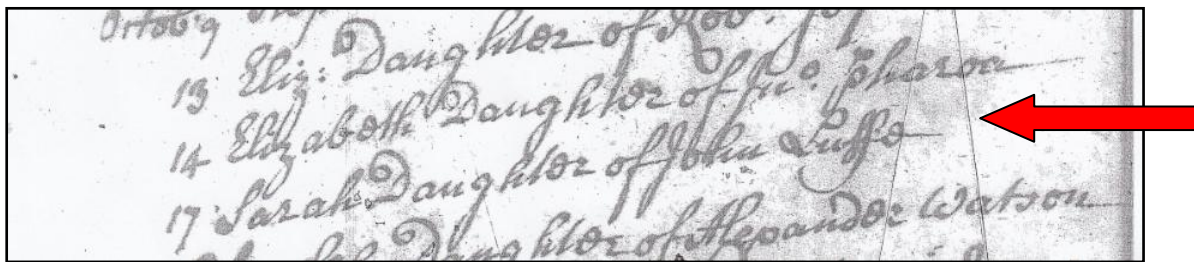 Octob: 9
13 Eliz: Daughter of Rob:
14 Elizabeth Daughter of Jno. Pharoa
17 Sarah Daughter of John Luffe
Daughter of Alexander Watson